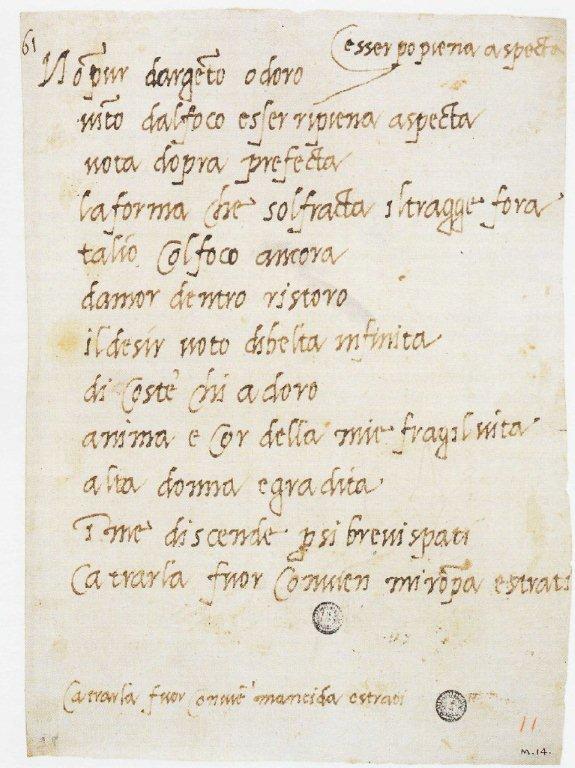 61
esser po piena aspecta
Nõ pur dargẽto odoro
uĩto dal foco esser ripiena aspecta
uota dopra prefecta
la forma che sol fracta il tragge fora
tal io col foco ancora
damor dentro ristoro
il desir uoto di belta infinita
di coste chi adoro
anima e cor della mie fragil uita
alta donna e gradita
ĩ me discende p̱ si breui spati
ca trarla fuor conuien mi rõpa e strati
ca trarla fuor conuiẽ mancida e strati
11
M.14.